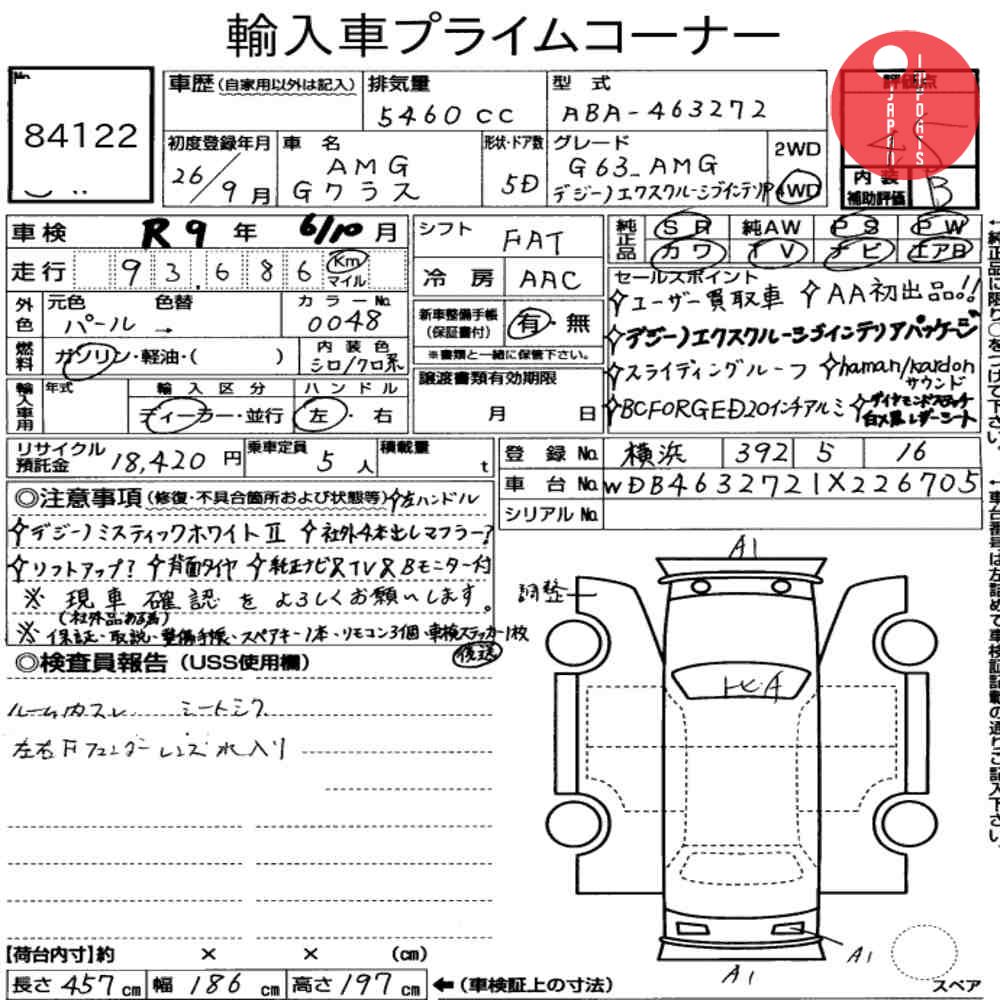 輸入車プライムコーナー
No.
84122
車歴 (自家用以外は記入) 排気量 型式 評価点
5460 CC ABA-463272
初度登録年月 車名 形状・ドア数 グレード 2WD
26/9月 AMG Gクラス 5D G63_AMG 4WD
デジーノエクスクルーシブインテリアP
内装補助評価 B
JAPAN IMPORTS
車検 R9年 6/10月
走行 93,686 Km マイル
外色 元色 色替 カラーNo.
パール → 0048
燃料 ガソリン・軽油・( ) 内装色 シロ/クロ系
輸入車用 年式 輸入区分 ハンドル
ディーラー・並行 左・右
シフト FAT
冷房 AAC
新車整備手帳(保証書付) 有・無
※書類と一緒に保管下さい。
譲渡書類有効期限
月 日
純正品 SR 純AW PS PW
カワ TV ナビ エアB
セールスポイント
✧ユーザー買取車 ✧AA初出品!!
✧デジーノエクスクルーシブインテリアパッケージ
✧スライディングルーフ ✧haman/kardonサウンド
✧BCFORGED20インチアルミ ✧ダイヤモンドステッチ白×黒レザーシート
リサイクル預託金 18,420円 乗車定員 5人 積載量 t
登録No. 横浜 392 5 16
車台No. WDB4632721X226705
シリアルNo.
◎注意事項(修復・不具合箇所および状態等) ✧左ハンドル
✧デジーノミスティックホワイトⅡ ✧社外4本出しマフラー?
✧リフトアップ? ✧背面タイヤ ✧純正ナビ&TV&Bモニター付
※現車確認をよろしくお願いします。
(社外品ある為)
※保証・取説・整備手帳・スペアキー1本・リモコン3個・車検ステッカー1枚
後送
◎検査員報告(USS使用欄)
ルーム内スレ シートシワ
左右Fフェンダーレンズ水入り
A1
調整
トビA
A1
A1
スペア
【荷台内寸】約 × × (cm)
長さ 457cm 幅 186cm 高さ 197cm ←(車検証上の寸法)
↑純正品に限り○をつけて下さい。
↑車台番号は左詰めで車検証記載の通りご記入下さい。